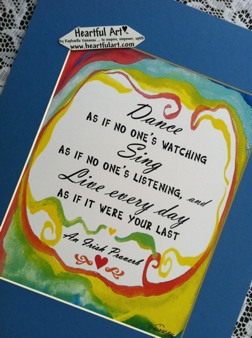 Heartful Art
www.heartfulart.com
Dance
AS IF NO ONE'S WATCHING
Sing
AS IF NO ONE'S LISTENING, and
Live every day
AS IF IT WERE YOUR LAST
An Irish Proverb